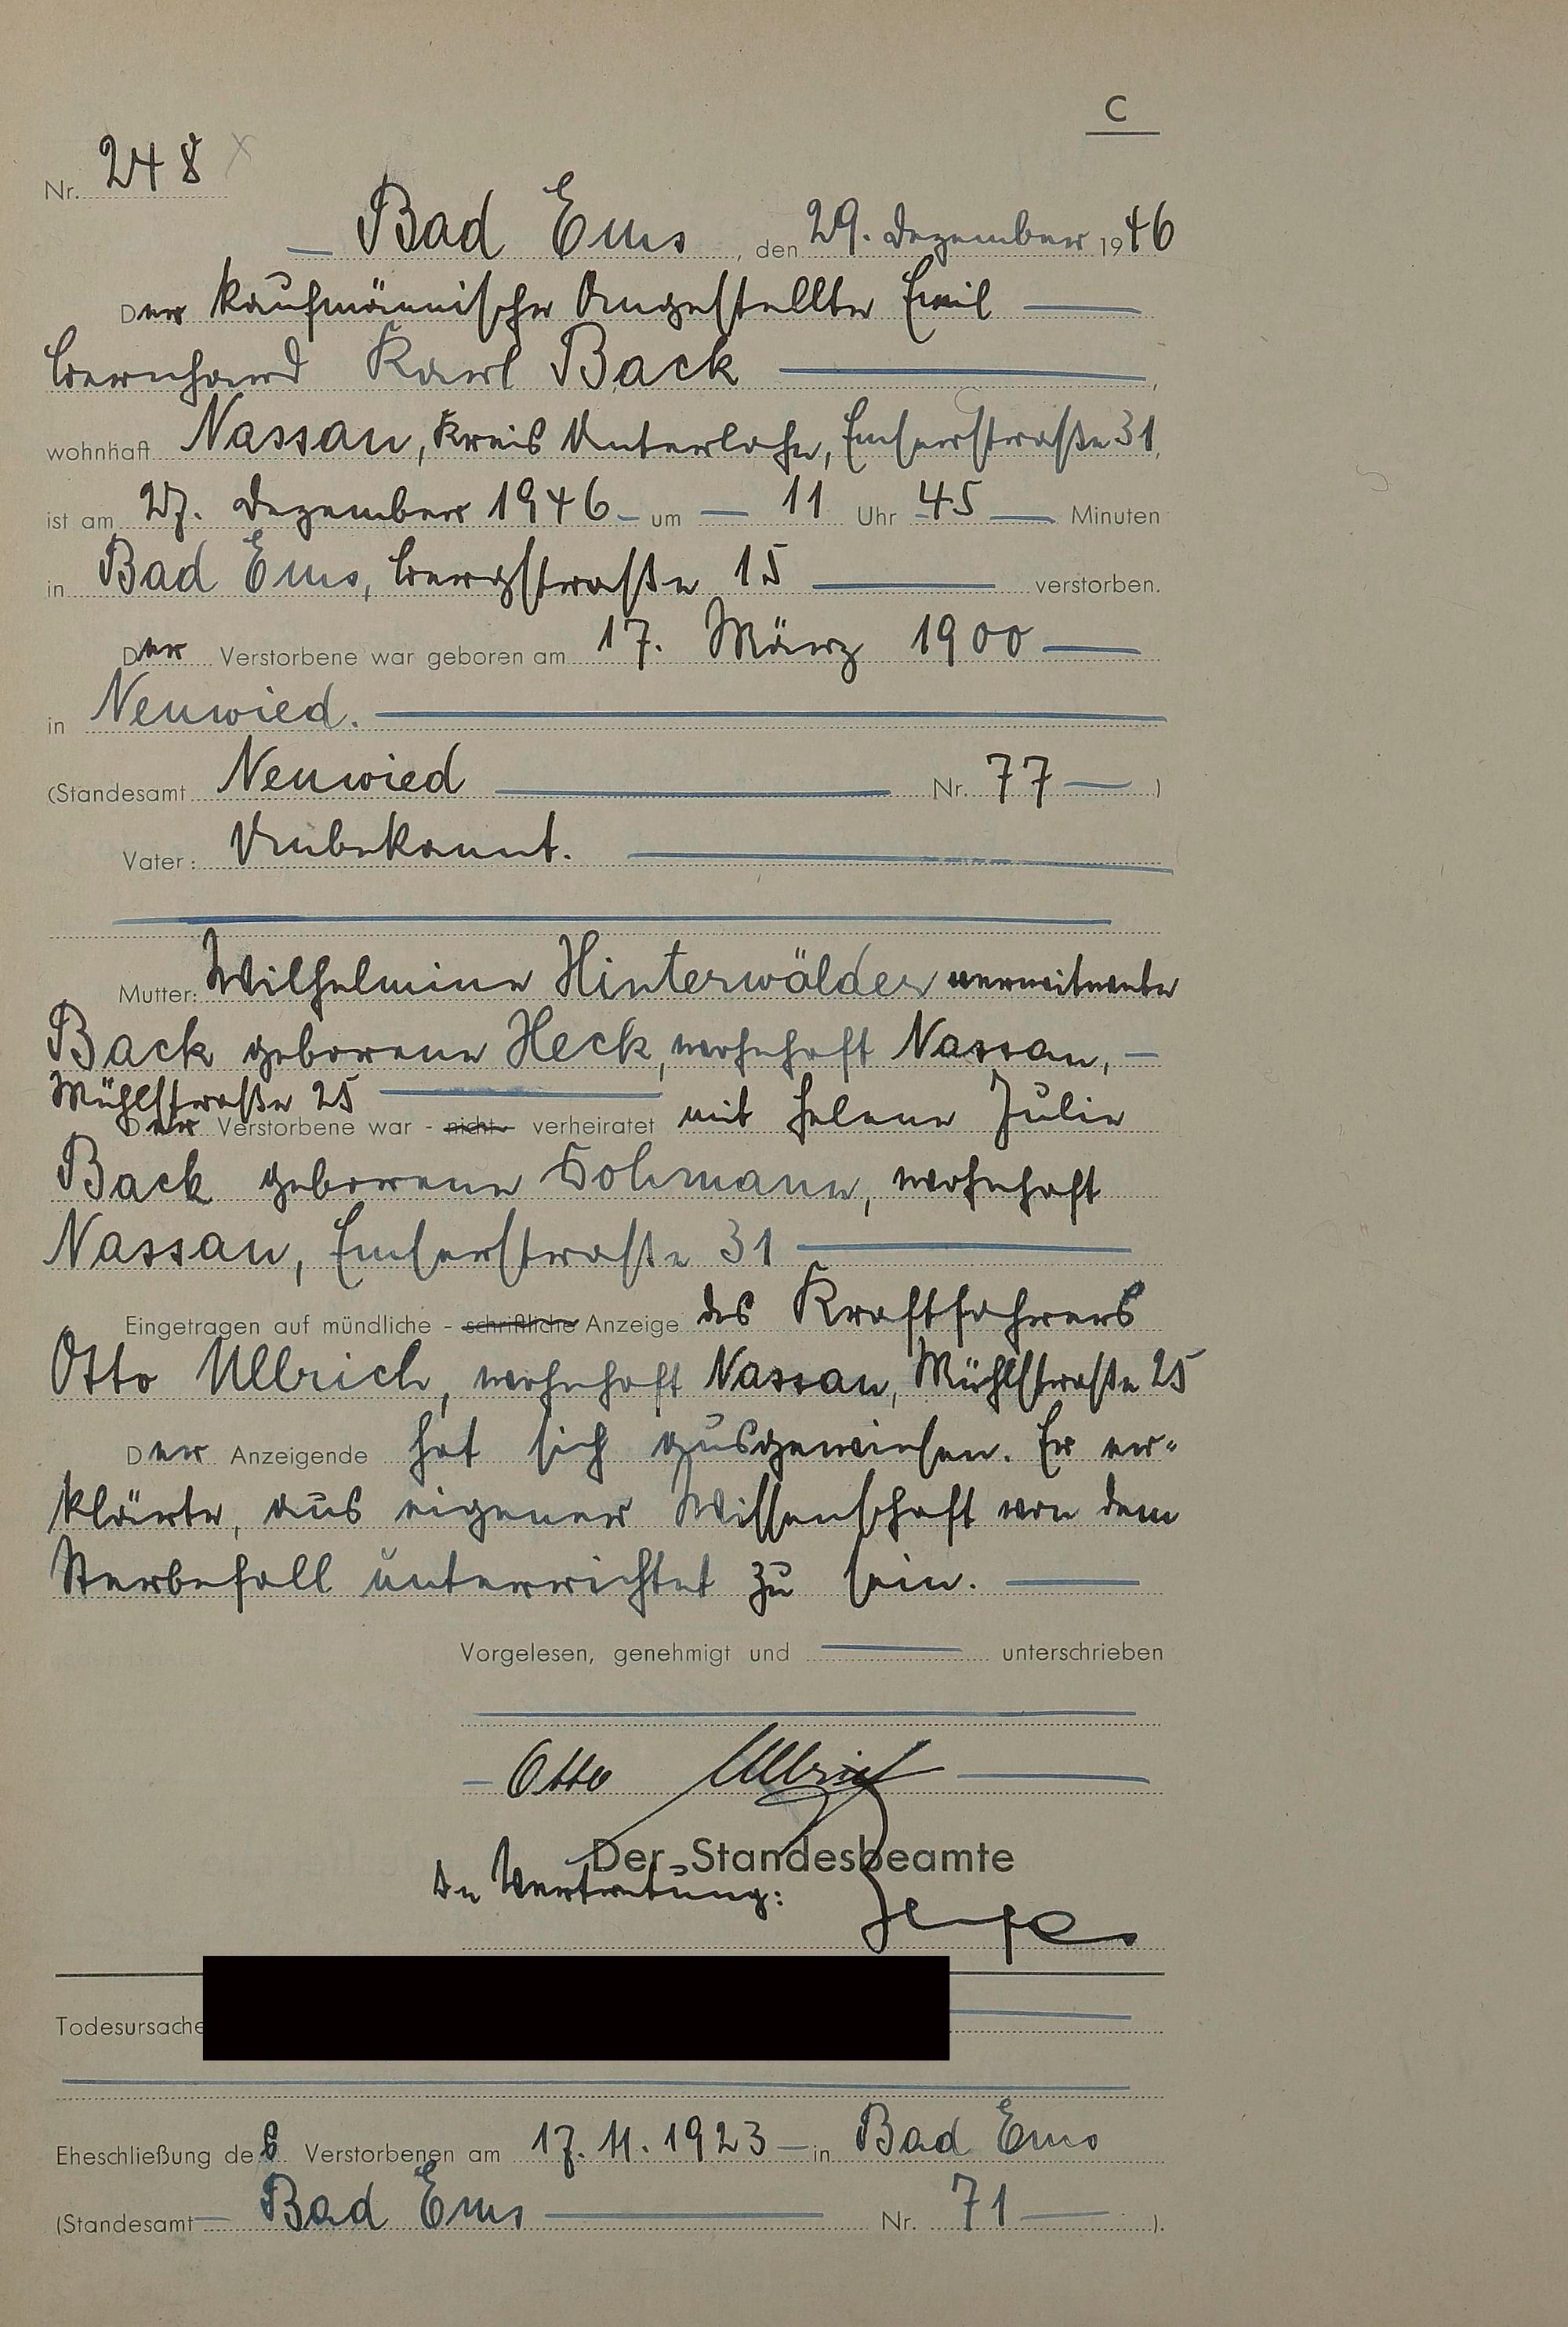 C
Nr. 248
Bad Ems, den 29. Dezember 1946
Der kaufmännische Angestellte Emil
Bernhard Karl Back,
wohnhaft Nassau, Kreis Unterlahn, Emserstraße 31,
ist am 27. Dezember 1946 um 11 Uhr 45 Minuten
in Bad Ems, Bergstraße 15 verstorben.
Der Verstorbene war geboren am 17. März 1900
in Neuwied.
(Standesamt Neuwied Nr. 77)
Vater: Unbekannt.
Mutter: Wilhelmine Hinterwälder verwitwete
Back geborene Heck, wohnhaft Nassau,
Mühlstraße 25
Der Verstorbene war - nicht - verheiratet mit Helene Julie
Back geborene wohnhaft
Nassau, Emserstraße 31
Eingetragen auf mündliche - schriftliche Anzeige des Kraftfahrers
Otto Ullrich, wohnhaft Nassau, Mühlstraße 25
Der Anzeigende hat sich ausgewiesen. Er er-
klärte, aus eigener Wissenschaft von dem
Sterbefall unterrichtet zu sein.
Vorgelesen, genehmigt und unterschrieben
Otto Ullrich
Der Standesbeamte
In Vertretung:
Todesursache
Eheschließung des Verstorbenen am 17.11.1923 in Bad Ems
(Standesamt Bad Ems Nr. 71).